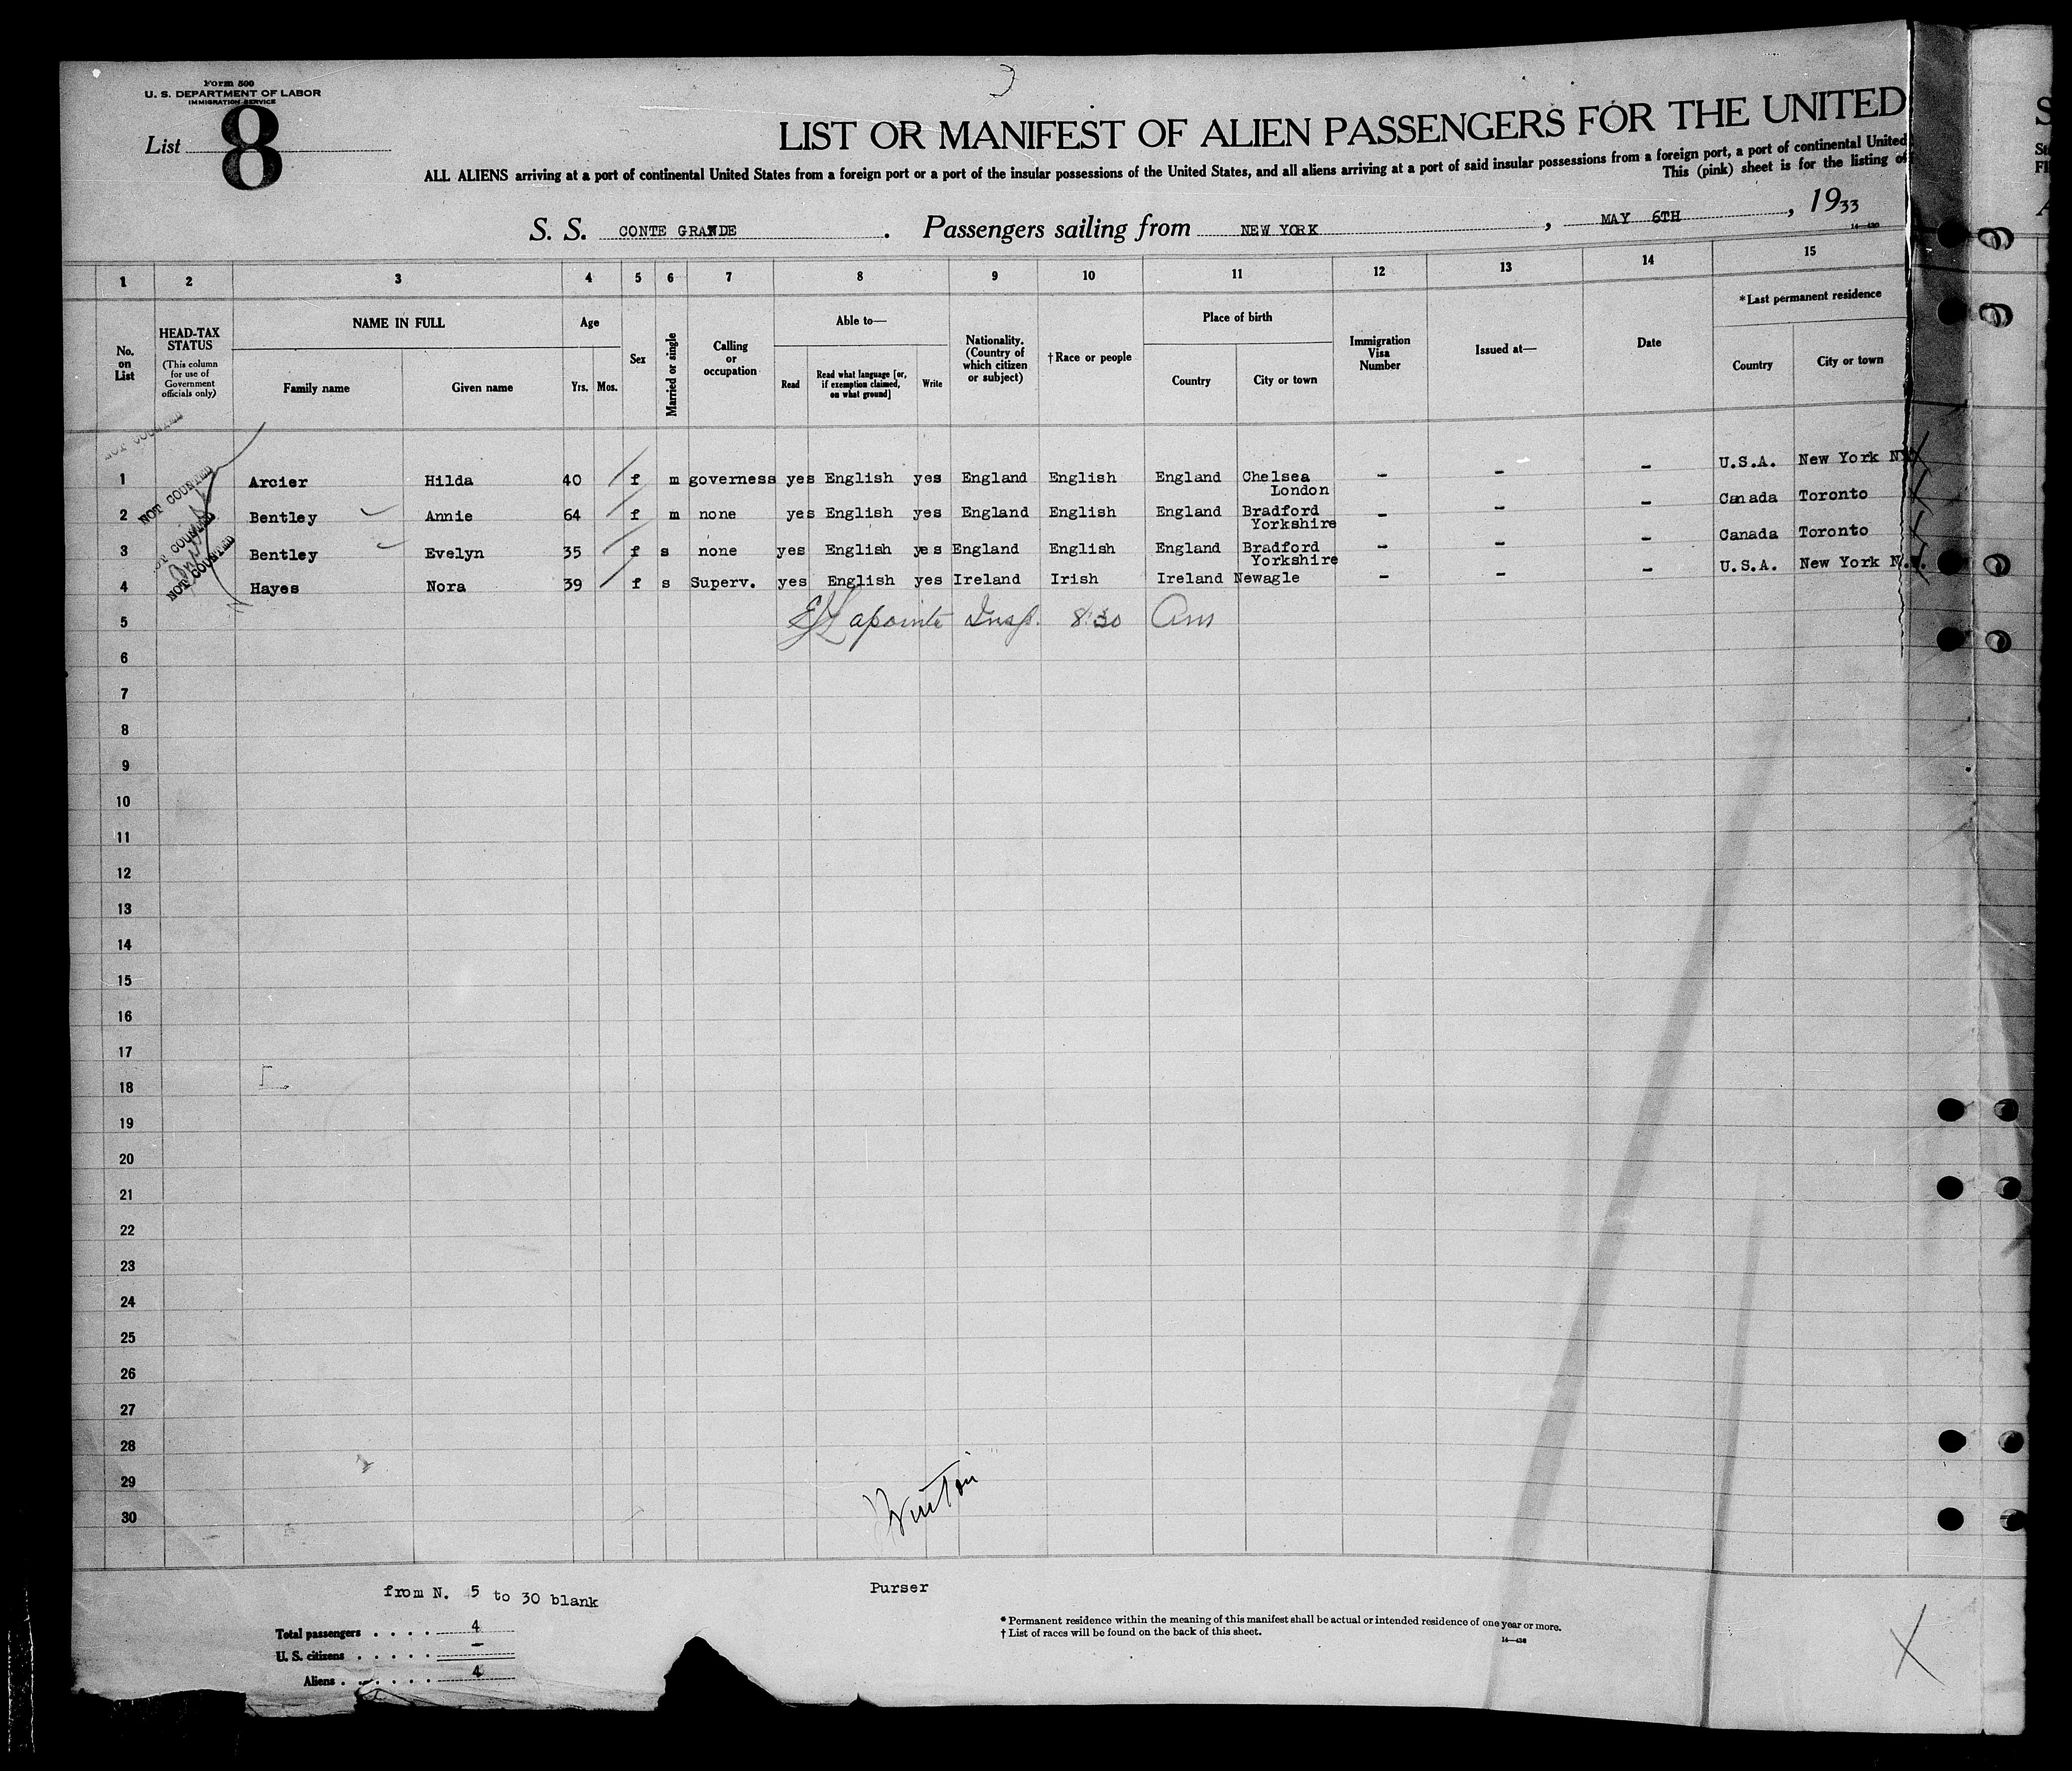 Form 500
U. S. DEPARTMENT OF LABOR
IMMIGRATION SERVICE
List 8
LIST OR MANIFEST OF ALIEN PASSENGERS FOR THE UNITED
ALL ALIENS arriving at a port of continental United States from a foreign port or a port of the insular possessions of the United States, and all aliens arriving at a port of said insular possessions from a foreign port, a port of continental United
This (pink) sheet is for the listing of
S. S. CONTE GRANDE. Passengers sailing from NEW YORK, MAY 6TH, 1933
14—430
1 2 3 4 5 6 7 8 9 10 11 12 13 14 15
No. on List
HEAD-TAX STATUS
(This column for use of Government officials only)
NAME IN FULL
Family name Given name
Age
Yrs. Mos.
Sex
Married or single
Calling or occupation
Able to—
Read
Read what language [or, if exemption claimed, on what ground]
Write
Nationality. (Country of which citizen or subject)
†Race or people
Place of birth
Country City or town
Immigration Visa Number
Issued at—
Date
*Last permanent residence
Country City or town
NOT COUNTED
NOT COUNTED
NOT COUNTED
NOT COUNTED
1 Arcier Hilda 40 f m governess yes English yes England English England Chelsea London - - - U.S.A. New York
2 Bentley Annie 64 f m none yes English yes England English England Bradford Yorkshire - - - Canada Toronto
3 Bentley Evelyn 35 f s none yes English yes England English England Bradford Yorkshire - - - Canada Toronto
4 Hayes Nora 39 f s Superv. yes English yes Ireland Irish Ireland Newagle - - - U.S.A. New York N.Y.
5 Lapointe Insp. 8:30 Am
6
7
8
9
10
11
12
13
14
15
16
17
18
19
20
21
22
23
24
25
26
27
28
29
30
from N. 5 to 30 blank
Purser
Total passengers . . . . 4
U. S. citizens . . . . . —
Aliens . . . . . . 4
* Permanent residence within the meaning of this manifest shall be actual or intended residence of one year or more.
† List of races will be found on the back of this sheet.
14—430